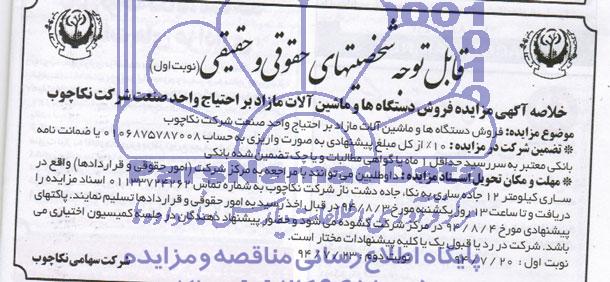 قابل توجه شخصیتهای حقوقی و حقیقی (نوبت اول)
خلاصه آگهی مزایده فروش دستگاه ها و ماشین آلات مازاد بر احتیاج واحد صنعت شرکت نکاچوب
موضوع مزایده: فروش دستگاه ها و ماشین آلات مازاد بر احتیاج واحد صنعت شرکت نکاچوب
* تضمین شرکت در مزایده: ۱۰٪ از کل مبلغ پیشنهادی به صورت واریزی به حساب ۰۱۰۶۸۷۵۷۸۷۰۰۸ یا ضمانت نامه
بانکی معتبر به سررسید حداقل ۱ ماه یا گواهی مطالبات و یا چک تضمین شده بانکی
* مهلت و مکان تحویل اسناد مزایده: داوطلبین می توانند با مراجعه به مرکز شرکت (امور حقوقی و قراردادها) واقع در
ساری کیلومتر ۱۲ جاده ساری به نکا، جاده دشت ناز شرکت نکاچوب به شماره تماس ۰۱۱۳۳۷۲۴۲۶۲ اسناد مزایده را
دریافت و تا ساعت ۱۳ روز یکشنبه مورخ ۹۴/۸/۳ در قبال اخذ رسید به امور حقوقی و قراردادها تسلیم نمایند. پاکتهای
پیشنهادی مورخ ۹۴/۸/۴ در مرکز شرکت گشوده می شود و حضور پیشنهاد دهندگان در جلسه کمیسیون اختیاری می
باشد. شرکت در رد یا قبول یک یا کلیه پیشنهادات مختار است.
نوبت اول: ۹۴/۰۷/۲۰ نوبت دوم: ۹۴/۰۷/۲۳
شرکت سهامی نکاچوب
پایگاه اطلاع رسانی مناقصه و مزایده